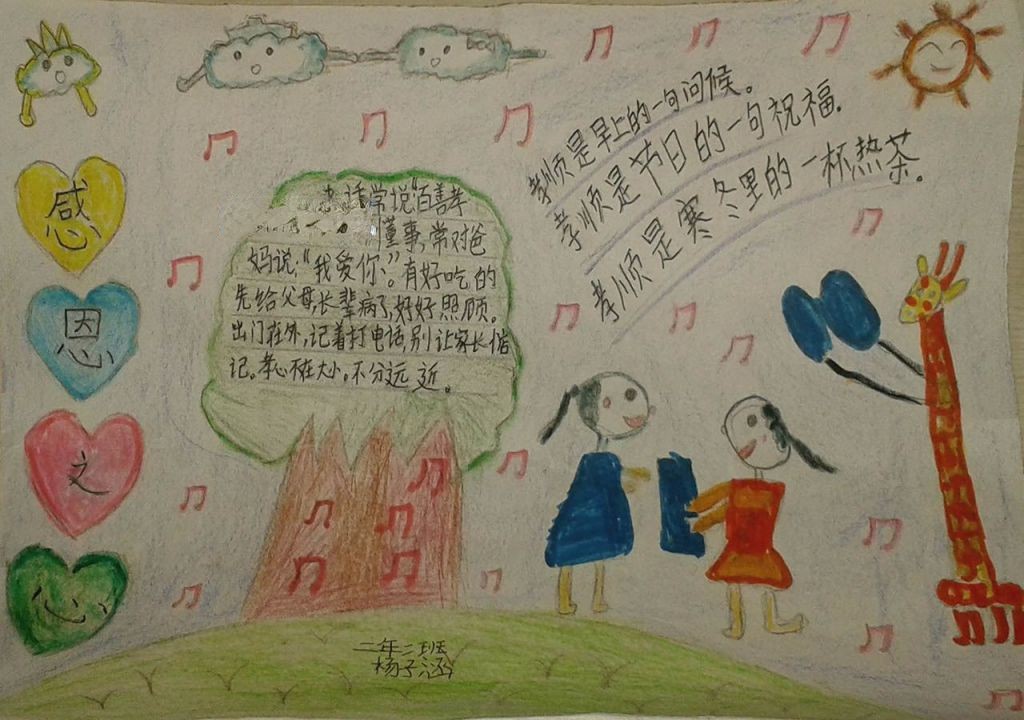 感
恩
之
心
老话常说"百善孝
懂事,常对爸
妈说:"我爱你、"有好吃的
先给父母,长辈病了,好好照顾。
出门在外,记着打电话,别让家长惦
记。孝心不在大小。不分远近。
孝顺是早上的一句问候。
孝顺是节日的一句祝福.
孝顺是寒冬里的一杯热茶。
二年二班
杨子涵